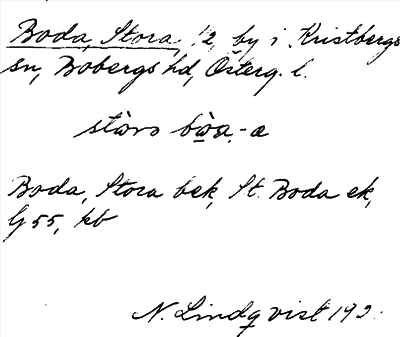 Boda, Stora, 1/2, by i Kristbergs
sn, Bobergs hd, Österg. l.
stòra bòa, -a
Boda, Stora bek, St. Boda ek,
G 55, kb
N. Lindqvist 192